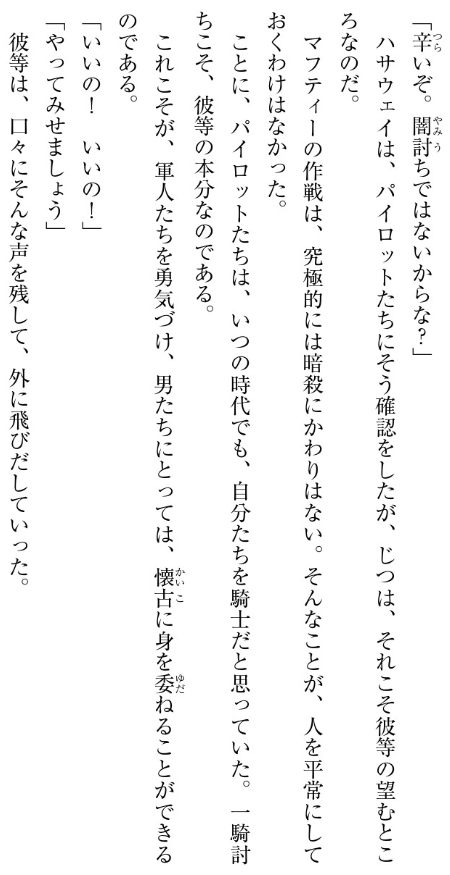 「辛いぞ。闇討ちではないからな？」
　ハサウェイは、パイロットたちにそう確認をしたが、じつは、それこそ彼等の望むとこ
ろなのだ。
　マフティーの作戦は、究極的には暗殺にかわりはない。そんなことが、人を平常にして
おくわけはなかった。
　ことに、パイロットたちは、いつの時代でも、自分たちを騎士だと思っていた。一騎討
ちこそ、彼等の本分なのである。
　これこそが、軍人たちを勇気づけ、男たちにとっては、懐古に身を委ねることができる
のである。
「いいの！　いいの！」
「やってみせましょう」
　彼等は、口々にそんな声を残して、外に飛びだしていった。